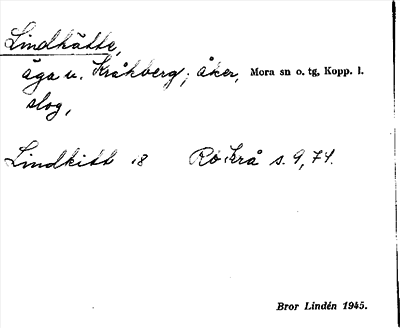 Lindhätte,
äga u. Kråkberg; åker, Mora sn o. tg, Kopp. l.
slog,
Lindkitt 18 Ro Krå s. 9, 74.
Bror Lindén 1945.